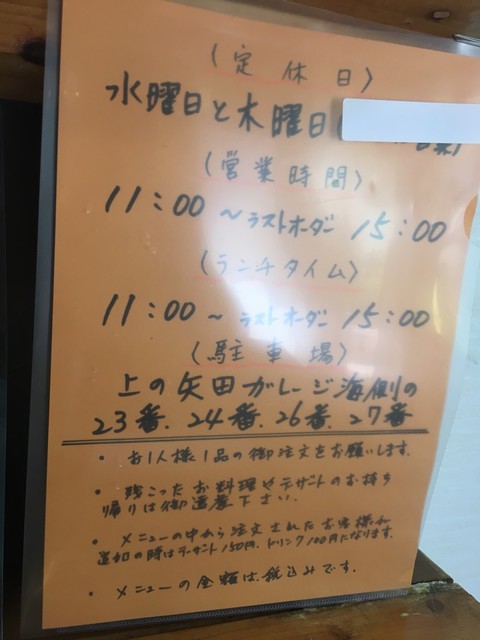 (定休日)
水曜日と木曜日
(営業時間)
11:00 ～ラストオーダー 15:00
(ランチタイム)
11:00 ～ ラストオーダー 15:00
(駐車場)
上の矢田ガレージ海側の
23番.24番.26番.27番
・ お1人様1品の御注文をお願いします.
・ 残こったお料理やデザートのお持ち
帰りは御遠慮下さい.
・ メニューの中から注文されたお客様が
追加の時はデザート150円.ドリンク100円になります.
・ メニューの金額は税込みです.